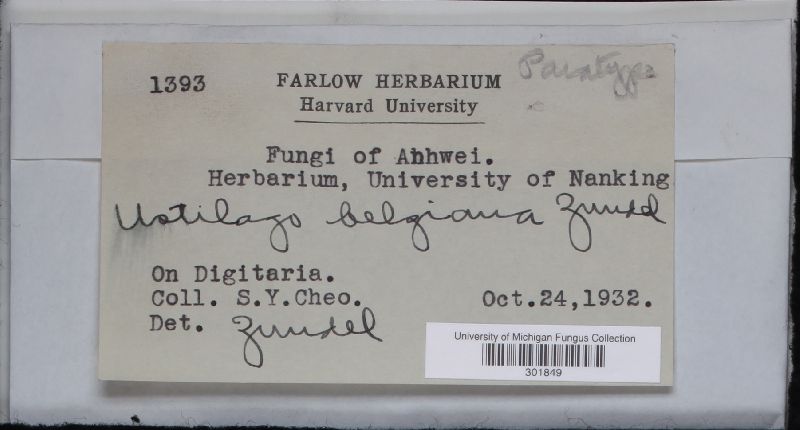 Paratype
1393 FARLOW HERBARIUM
Harvard University
Fungi of Anhwei.
Herbarium, University of Nanking
Ustilago belgiana Zundel
On Digitaria.
Coll. S.Y.Cheo. Oct.24,1932.
Det. Zundel
University of Michigan Fungus Collection
301849